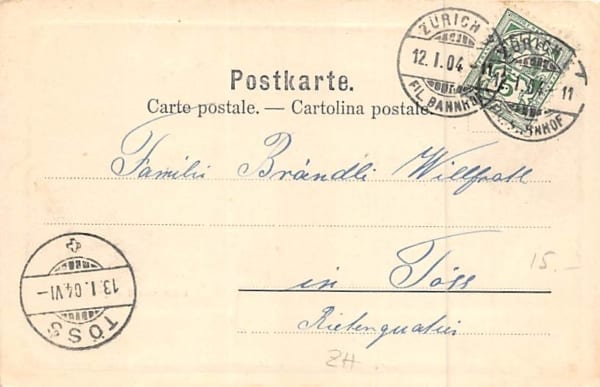 ZÜRICH
12.I.04.-11
FIL. BAHNHOF
ZÜRICH
12.I.04.-11
FIL. BAHNHOF
5
Postkarte.
Carte postale. — Cartolina postale.
Familie Brändli
in Töss
15.-
ZH
13.I.04.VI-
TÖSS